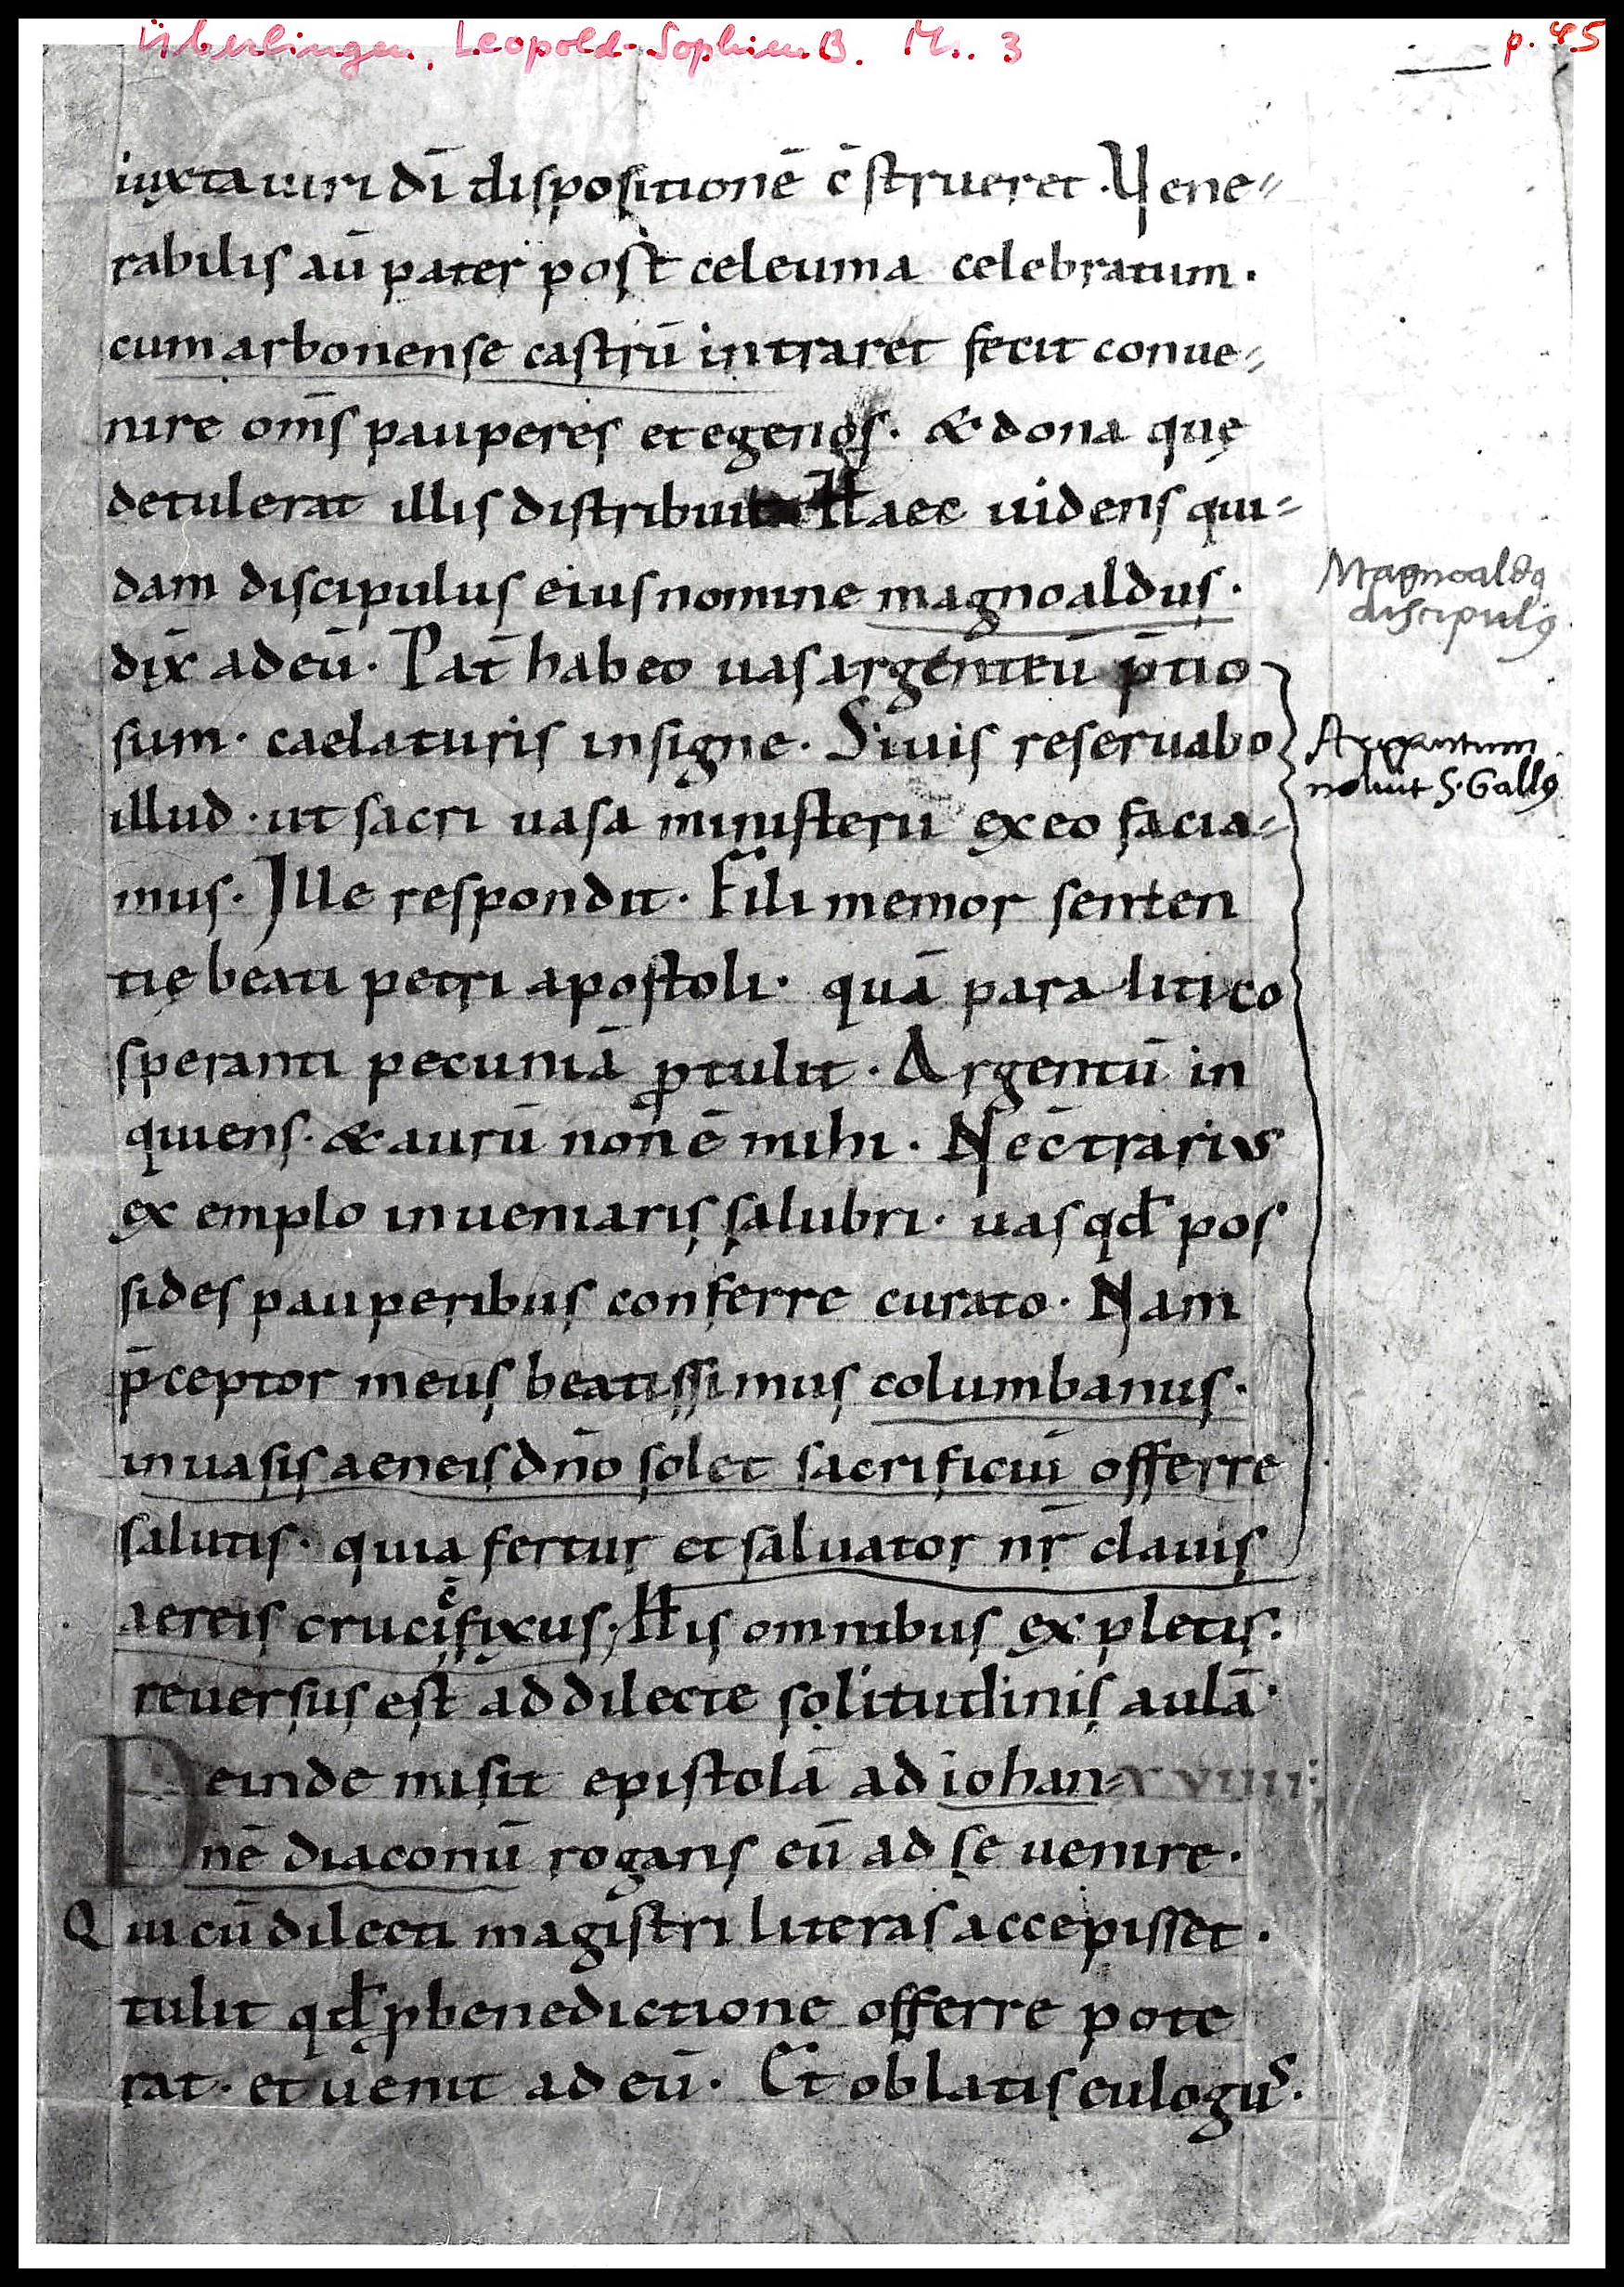 Überlingen, Leopold-Sophien B. Ms. 3
p. 45
iuxta uiri dī dispositionē c̄strueret. Vene-
rabilis aū pater post celeuma celebratum.
cum arbonense castrū intraret fecit conue-
nire om̄s pauperes et egenos. & dona quę
detulerat illis distribuit. Haec uidens qui-
dam discipulus eius nomine magnoaldus.
Magnoaldꝯ
discipulꝯ
dix̄ ad eū. Pat̄ habeo uas argenteū p̄tio
sum. caelaturis insigne. Si uis reseruabo
Argentum
noluit S. Gallꝯ
illud. ut sacri uasa ministerii ex eo facia-
mus. Ille respondit. Fili memor senten
tię beati petri apostoli. quā paralitico
speranti pecuniā ꝓtulit. Argentū in
quiens. & aurū non ē mihi. Nec̄trarius
exemplo inueniaris salubri. uas qd̄ pos
sides pauperibus conferre curato. Nam
p̄ceptor meus beatissimus columbanus.
in uasis aeneis dn̄o solet sacrificiū offerre
salutis. quia fertur et saluator nr̄ clauis
aereis crucifixus. His omnibus expletis.
reuersus est ad dilecte solitudinis aulā.
Deinde misit epistolā ad iohan- xviiii:
nē diaconū rogans eū ad se uenire.
Qui cū dilecti magistri literas accepisset.
tulit qd̄ ꝓ benedictione offerre pote
rat. et uenit ad eū. Et oblatis eulogiis.